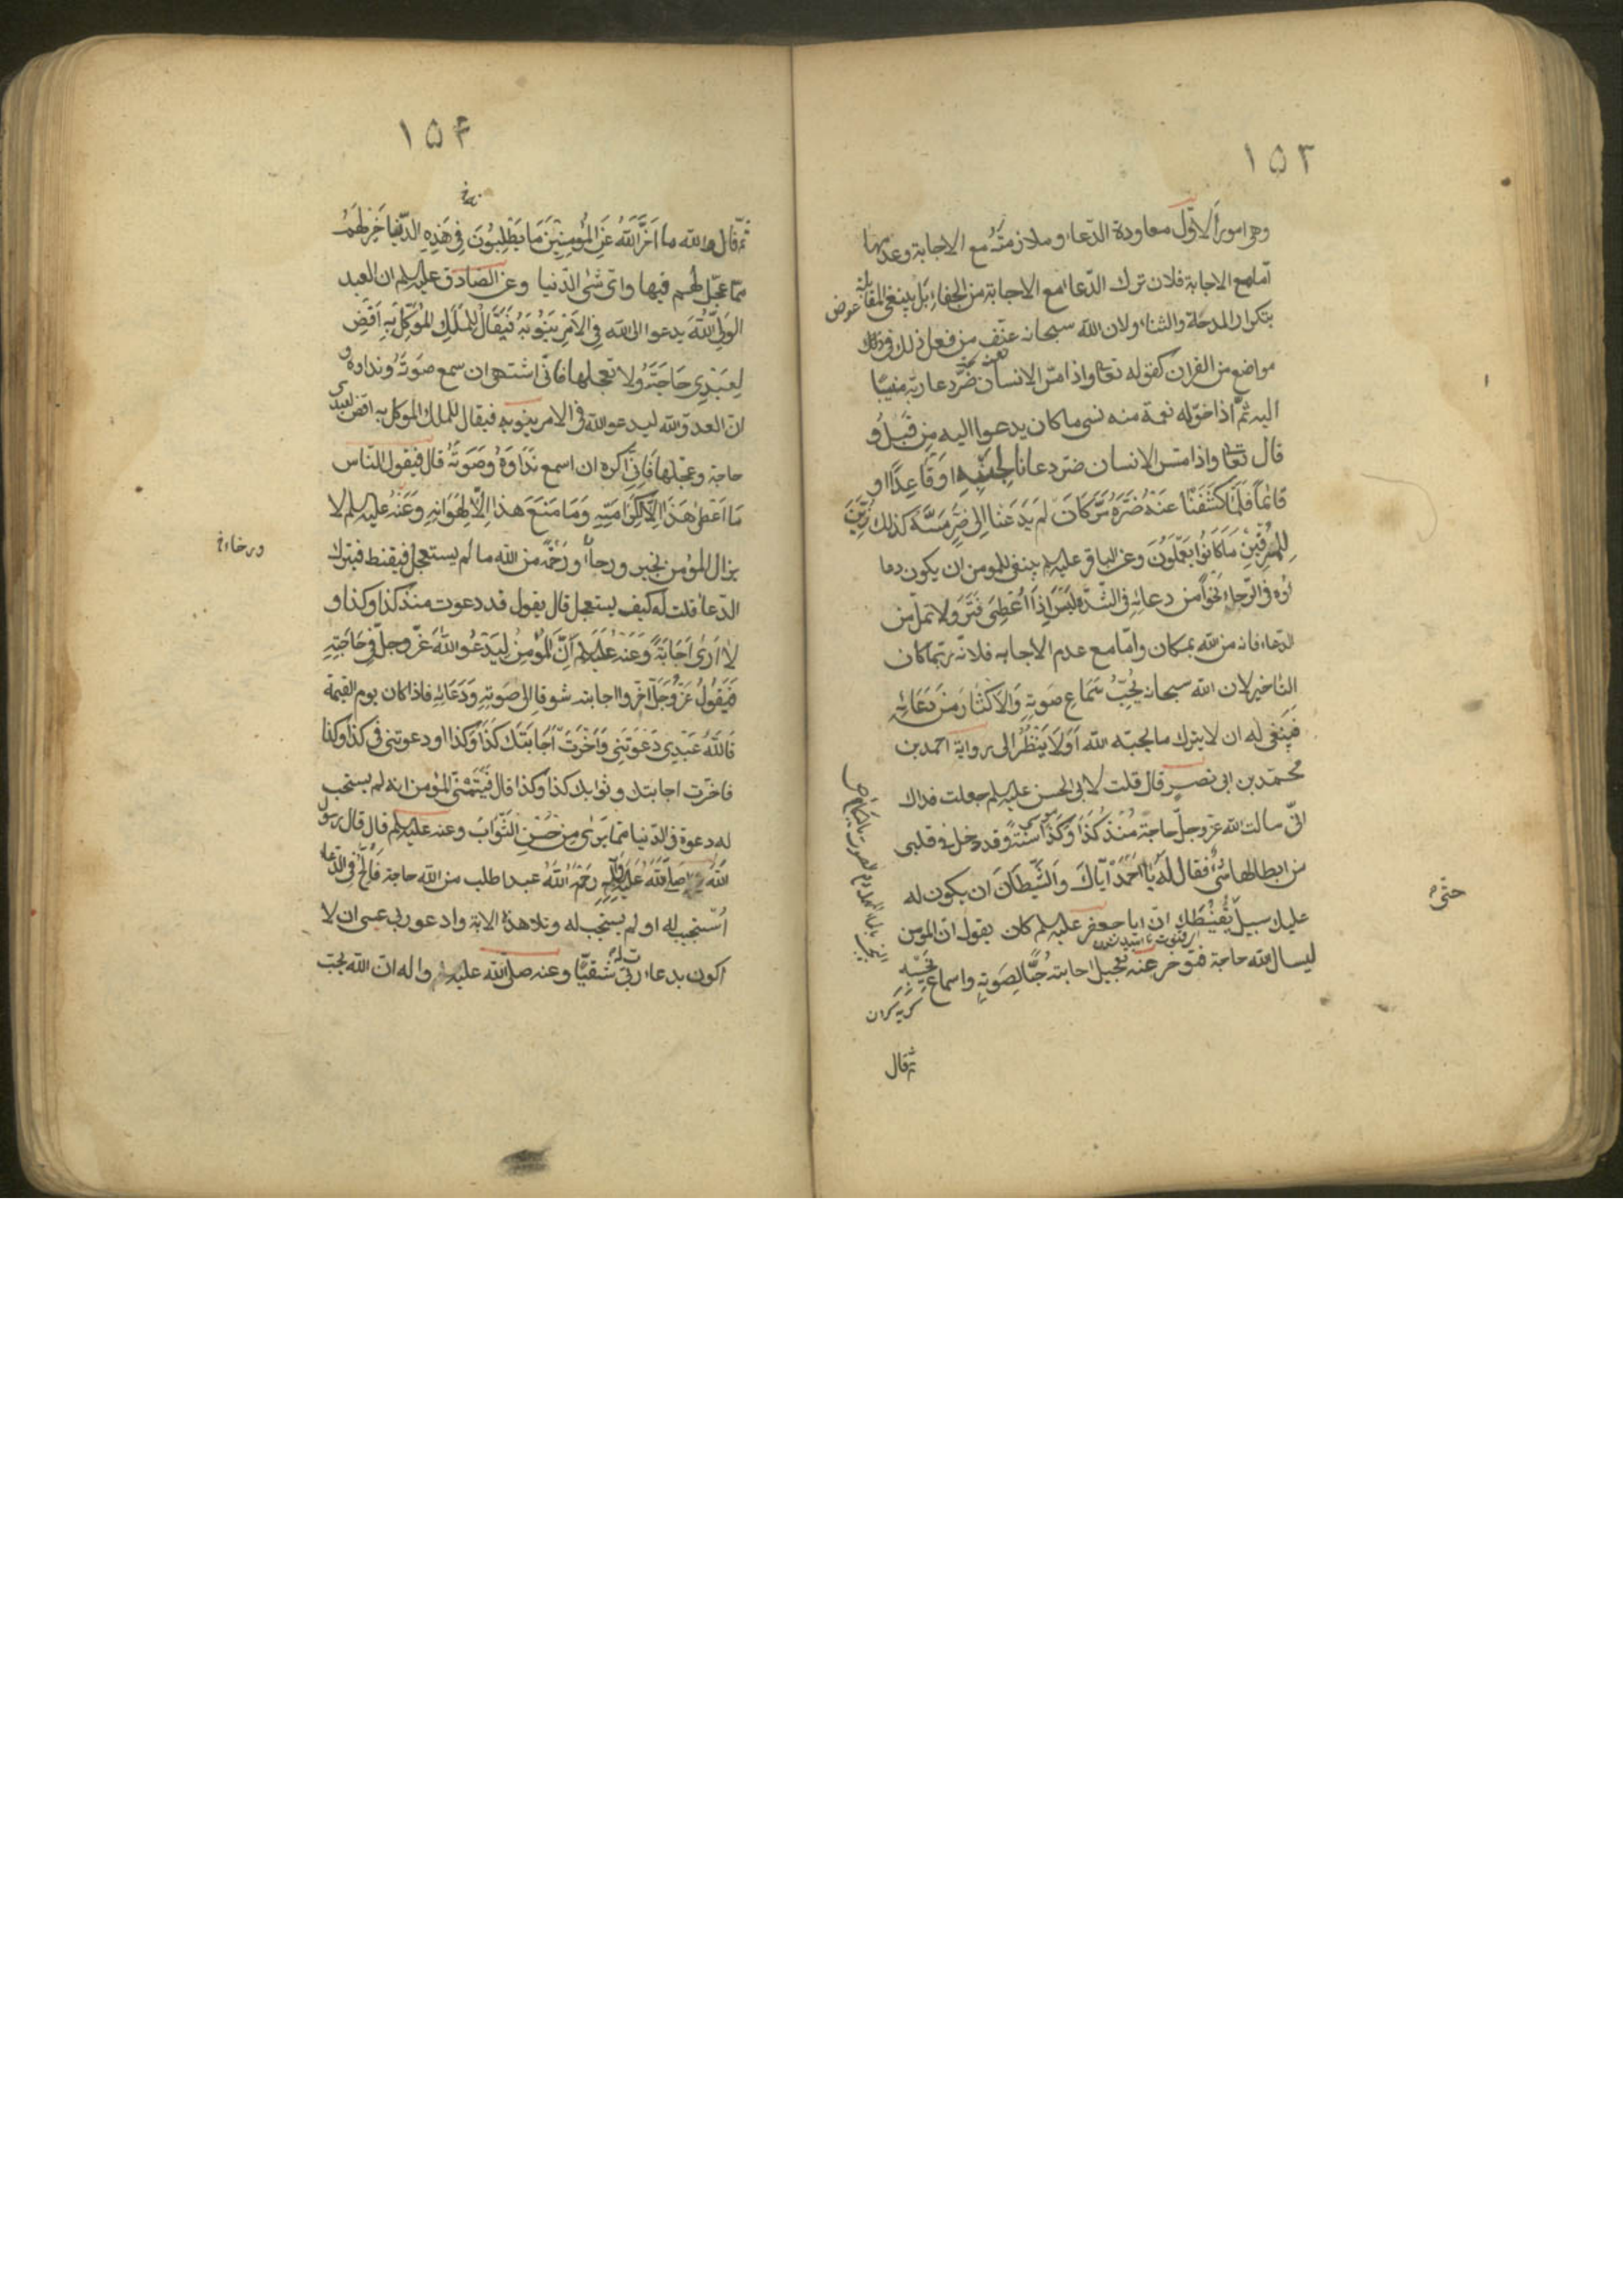 ١٥٣
وهى امور الاوّل معاودة الدّعاء و ملازمته مع الاجابة وعدمها
امّا مع الاجابة فلان ترك الدّعاء مع الاجابة من الجفاء بَل ينبغى المقابلة عوض
بتكرار المدحة والثناء ولان الله سبحانه عنّف من فعل ذلك فى
مواضع من القران كقوله تعالى واذا مسّ الانسان ضُرّ دعا ربّه منيبًا
اليه ثُمّ اذا خوّله نعمة منه نسى ما كان يدعوا اليه مِن قَبلُ و
قال تعالى واذا مسّ الانسان ضرّ دعانا لِجَنبِهِ اوقَاعِدًا او
قَائمًا فَلَمّا كَشَفنَا عَنهُ ضُرَّهُ مَرَّ كَاَن لَم يَدعُنَا اِلى ضُرٍّ مَسَّهُ كَذلك زُيِّنَ
لِلمُسرِفِينَ مَا كَانُوا يَعمَلُونَ وعن الباقر عليه السلم ينبغى للمومن ان يكون دعا
ئه فى الرّخاء نَحوًا مِن دعائِه فى الشّدّة لَيسَ اِذَا اُعطِىَ فَتَرَ ولا تملّ من
الدّعاء فانه من الله بمكان وامّا مع عدم الاجابه فلانّه ربّما كان
التاخير لان الله سبحانه يُحِبُّ سَمَاع صَوتِهِ وَالاكثَارَ مِن دُعَائِهِ
فينبغى له ان لا يترك ما يحبّه الله اَوَلَا يَنظُرُ الى رواية احمد بن
محمّد بن ابى نصرٍ قال قلت لابى الحسن عليه السلم جعلت فداك
انّى سالت الله عزوجلّ حاجة مُنذ كَذَا وكَذا سَنَةً وقد دخل فى قلبى
من ابطائها شىءٌ فقال لَه يَا اَحمَدُ ايّاكَ وَالشّيطَانَ ان يكون له
عليك سبيلٌ
حتّى
يُقَنِّطَك انّ ابا جعفر عليه السلم كان يقول انّ المومن
ليسال الله حاجة فتوخر عنه تعجيل اجابته حُبًّا لِصَوتِهِ واسماع نَحِيبِهِ
ثم قال
١٥٤
ثمّ قال والله ما اَخَّرَ اللهُ عَنِ المُؤمِنِينَ مَا يَطلُبُونَ فِى هَذِهِ الدّنيا خَيرٌ لَهُم
ممّا عَجّل لهم فيها واىّ شىء الدّنيا وعن الصّادق عليه السلم ان العبد
الوَلِىّ لِلّهِ يدعوا الله فِى الاَمرِ يَنُوبُهُ فَيُقَالُ لِلمَلَكِ المُوَكَّلِ بِهِ اَقضِ
لِعَبدِى حَاجَتَهُ ولا تعجّلها فانّى اشتهى ان سمع صَوتَهُ ونداءه و
انّ العدوّ لله ليدعو الله فى الامر ينوبه فيقال للملك الموكل به اقض لعبدى
حاجة وعجّلها فَاِنّى اكره ان اسمع نِدَاءَهُ وصَوتَهُ قال فيقول للنّاس
مَا اُعطِىَ هَذَا اِلّا لِكَرَامَتِهِ وَمَا مُنِعَ هَذَا اِلّا لِهَوَانِهِ وَعَنهُ عليه السلم لا
يزال المؤمن بخير ورجاءٍ ورَحمَةٍ من الله ما لم يستعجل فيقنط فيترك
ورخاء خ
الدّعاء قلت له كيف يستعجل قال يقول قد دعوت منذ كذا وكذا و
لَا اَرَى اِجَابَةً وَعَنهُ عليه السلم اَنَّ المُؤمِنَ لِيَدعُو اللهَ عَزّوجلّ فى حَاجَتِهِ
فَيَقُولُ عَزَّوَجَلَّ اَخّروا اجابته شوقا الى صَوتِهِ وَدُعَائِهِ فاذا كان يوم القيمة
قَالَ اللهُ عَبدِى دَعَوتَنِى وَاَخَّرتُ اِجَابَتَكَ كَذَا وَكَذَا ودعوتنى فى كذا وكذا
فاخّرت اجابتك وثوابك كذا وكذا قال فَيَتَمَنَّى المؤمن انه لم يستجب
له دعوة فى الدّنيا ممّا يَرَى مِن حُسنِ الثَّوَابِ وعنه عليه السلم قال قال رسول
الله صلّى اللهُ عَلَيهِ وآلِهِ رَحِمَ اللهُ عبدا طلب من الله حاجة فَاَلَحَّ فى الدّعاء
اُستُجِيبَ له او لم يستجب له وتلا هذه الاية وادعو ربى عسى ان لا
اكون بدعاء ربّى شَقِيًّا وعنه صلى الله عليه واله ان الله يحبّ